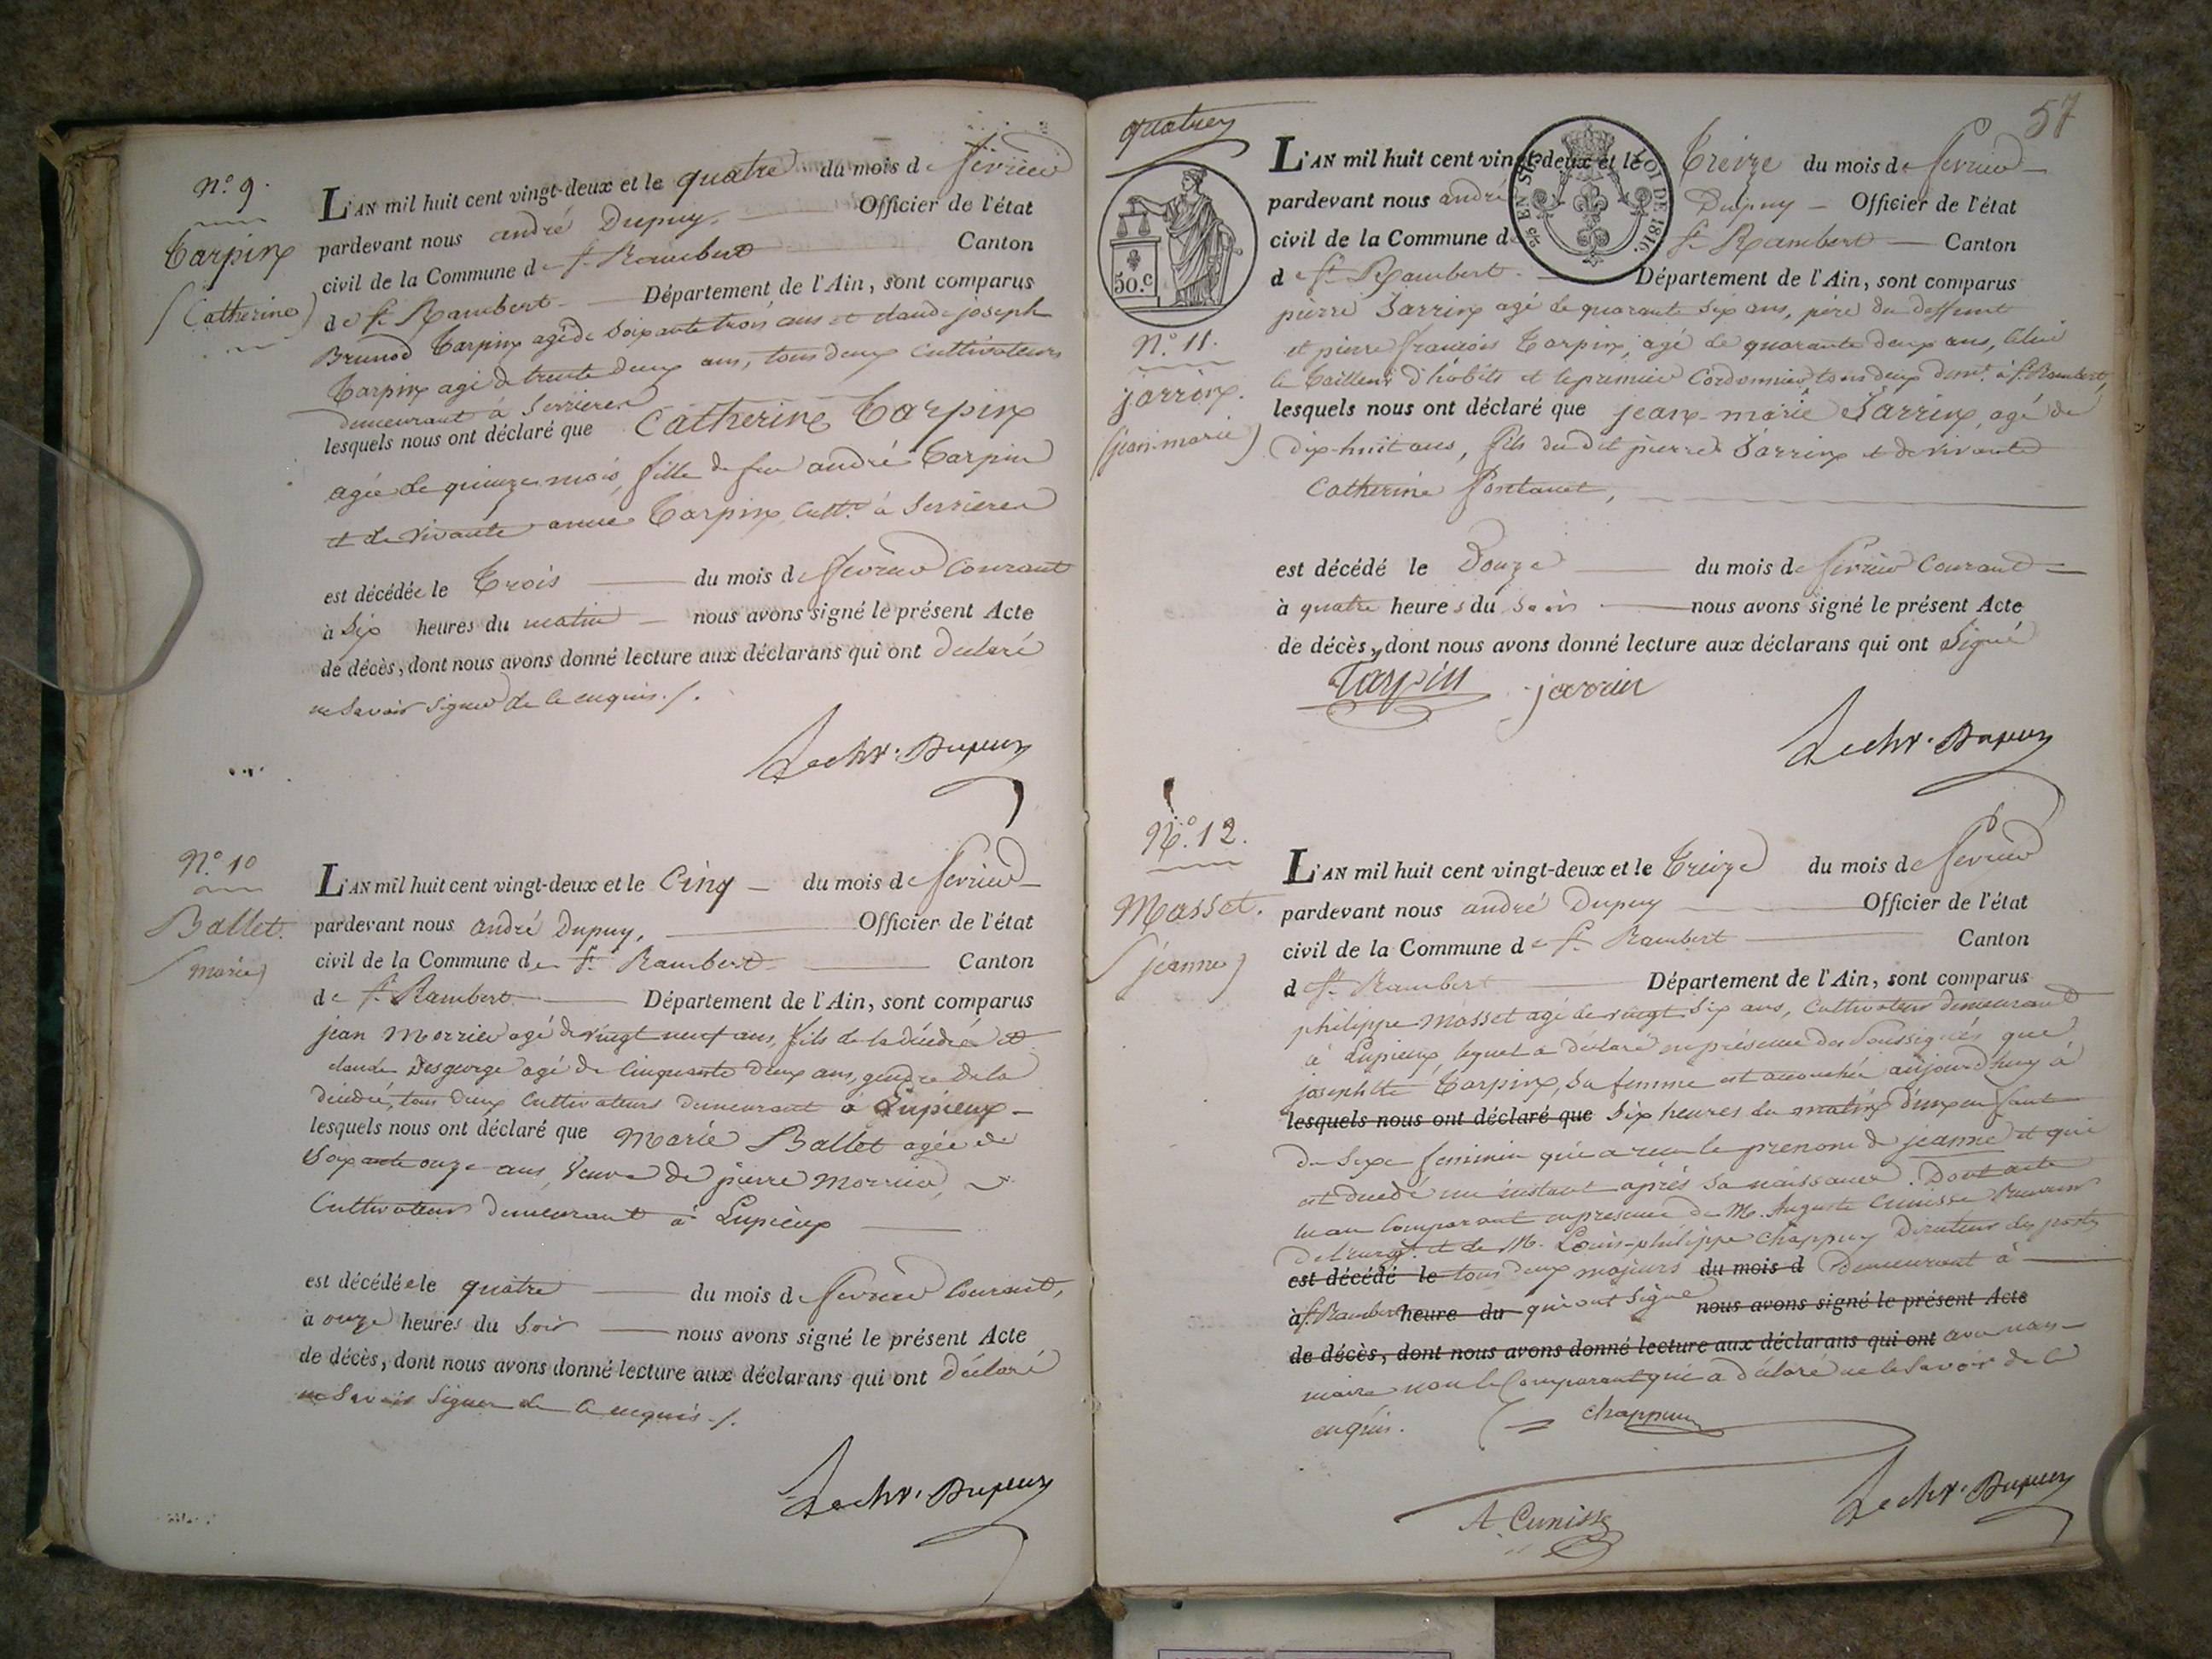 N.° 9.
Carpin
(Catherine)
L'AN mil huit cent vingt-deux et le quatre du mois de février
pardevant nous andré Dupuy Officier de l'état
civil de la Commune de St Rambert Canton
de St Rambert Département de l'Ain, sont comparus
Brunod Carpin agé de Soixante trois ans et claude joseph
Carpin agé de trente deux ans, tous deux Cultivateurs
demeurant à Serrieres
lesquels nous ont déclaré que Catherine Carpin
agée de quinze mois, fille de feu andré Carpin
et de vivante anne Carpin, Cult.r à Serrieres
est décédée le Trois du mois de février Courant
à Six heures du matin nous avons signé le présent Acte
de décès, dont nous avons donné lecture aux déclarans qui ont déclaré
ne Savoir Signer de ce enquis./.
Lechr. Dupuy
N.° 10
Ballet.
(marie)
L'AN mil huit cent vingt-deux et le Cinq du mois de fevrier
pardevant nous andré Dupuy, Officier de l'état
civil de la Commune de St Rambert Canton
de St Rambert Département de l'Ain, sont comparus
jean Morrier agé de vingt neuf ans, fils de la décédée et
claude Desgeorge agé de Cinquante deux ans, gendre de la
décédée, tous deux Cultivateurs demeurant à Lupieux
lesquels nous ont déclaré que Marie Ballet agée de
Soixante onze ans, Veuve de pierre Morrier,
Cultivateur demeurant à Lupieux
est décédée le quatre du mois de fevrier Courant,
à onze heures du Soir nous avons signé le présent Acte
de décès, dont nous avons donné lecture aux déclarans qui ont déclaré
ne Savoir Signer de ce enquis./.
Lechr. Dupuy
57
50.c
EN SUS
LOI DE 1816.
N.° 11.
jarrin.
(jean-marie)
L'AN mil huit cent vingt-deux et le Treize du mois de fevrier
pardevant nous andré Dupuy Officier de l'état
civil de la Commune de St Rambert Canton
de St Rambert Département de l'Ain, sont comparus
pierre Jarrin agé de quarante Six ans, père du deffunt
et pierre françois Carpin, agé de quarante deux ans, Celui
ci Tailleur d'habits et le premier Cordonnier, tous deux dem.t à St Rambert,
lesquels nous ont déclaré que jean-marie Jarrin, agé de
Dix-huit ans, fils du dit pierre Jarrin et de vivante
Catherine Pontanet,
est décédé le Douze du mois de février Courant
à quatre heures du Soir nous avons signé le présent Acte
de décès, dont nous avons donné lecture aux déclarans qui ont Signé
Carpin jarrin
Lechr. Dupuy
N.° 12.
Masset.
(jeanne)
L'AN mil huit cent vingt-deux et le Treize du mois de fevrier
pardevant nous andré Dupuy Officier de l'état
civil de la Commune de St Rambert Canton
de St Rambert Département de l'Ain, sont comparus
philippe Masset agé de vingt Six ans, Cultivateur demeurant
à Lupieux, lequel a déclaré en présence des Soussignés que
josephte Carpin, Sa femme est accouchée aujourd'huy à
lesquels nous ont déclaré que Six heures du matin d'un enfant
du Sexe feminin qui a reçu le prenom de jeanne et qui
est decedé un instant après Sa naissance. Dont acte
lu au Comparant en presence de M. Auguste Cunisse Receveur
de l'enreg.t et de M. Louis-philippe Chappuy Directeur des postes
est décédé le tous deux majeurs du mois d demeurant à
à St Rambert heure du qui ont Signé nous avons signé le présent Acte
de décès, dont nous avons donné lecture aux déclarans qui ont avec nous
maire non le Comparant qui a déclaré ne le Savoir de ce
enquis.
Chappuy
A. Cunisse
Lechr. Dupuy